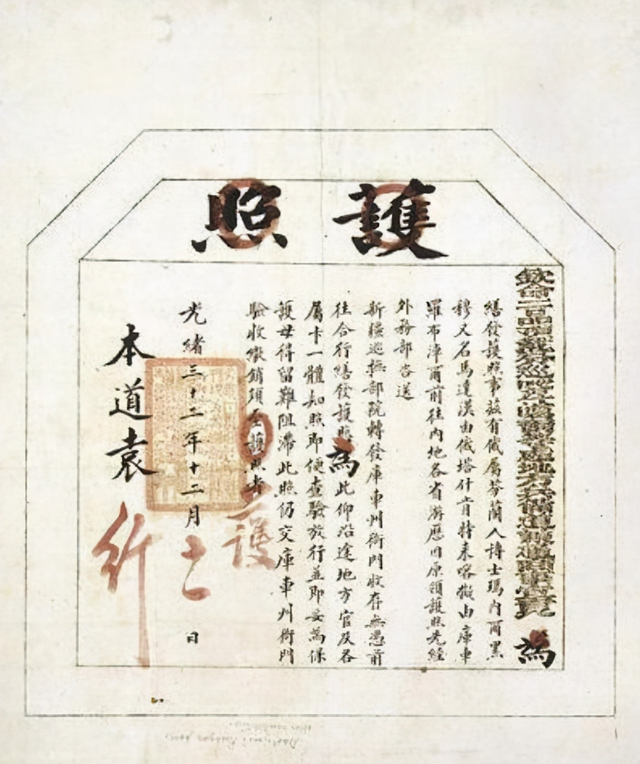 護照
欽命二品頂戴分巡喀什噶爾等處地方兵備道 通商事宜袁 為
繕發護照事茲有俄屬芬蘭人博士瑪內爾黑
穆又名馬達漢由俄塔什肯特來喀擬由庫車
羅布淖爾前往內地各省游歷因原領護照先經
外務部咨送
新疆巡撫部院轉發庫車州衙門收存無憑前
往合行繕發護照為此仰沿途地方官及各
屬卡一體知照即便查驗放行並即妥為保
護毋得留難阻滯此照仍交庫車州衙門
驗收繳銷須至護照者
護
光緒三十二年十二月 日
本道袁
行